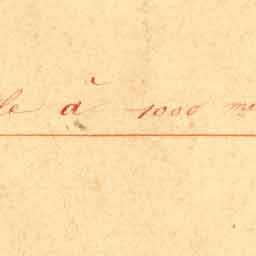 le à 1000 me